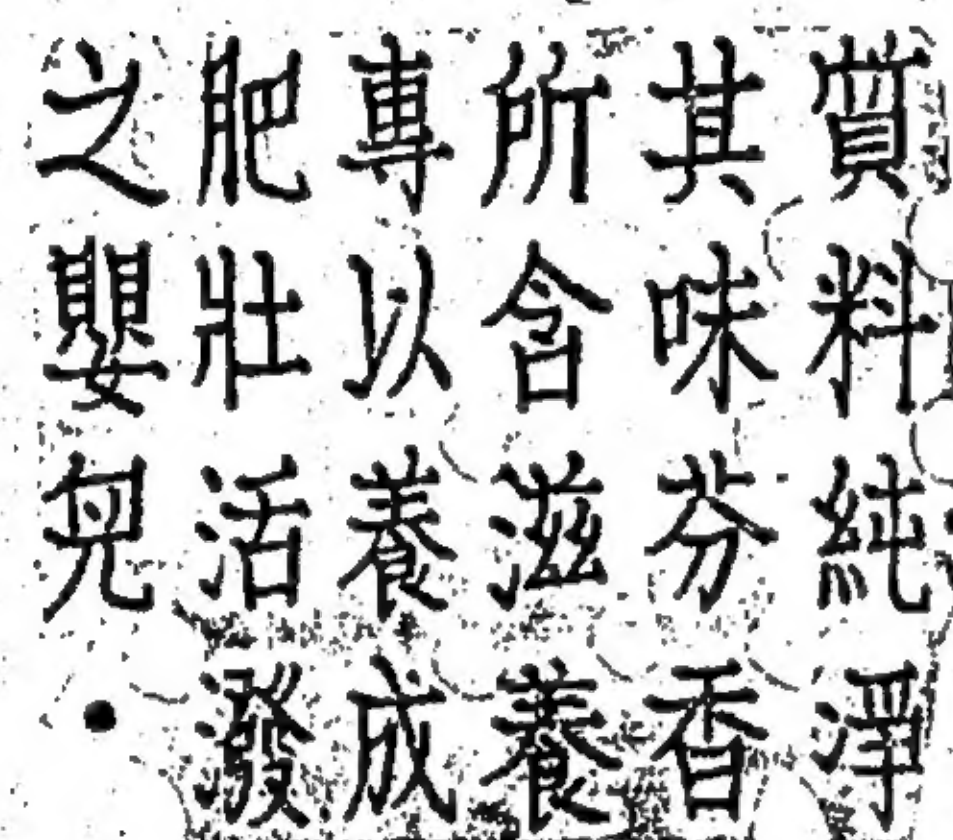 質料純淨
其味芬香
所含滋養
專以養成
肥壯活潑
之嬰兒●